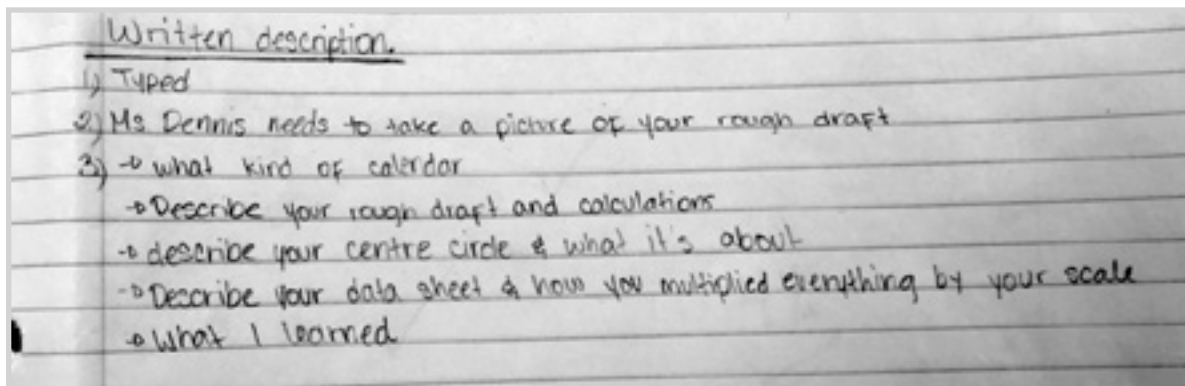 Written description.
1) Typed
2) Ms Dennis needs to take a picture of your rough draft
3) → what kind of calendar
→ Describe your rough draft and calculations
→ describe your centre circle & what it's about
→ Describe your data sheet & how you multiplied everything by your scale
→ What I learned